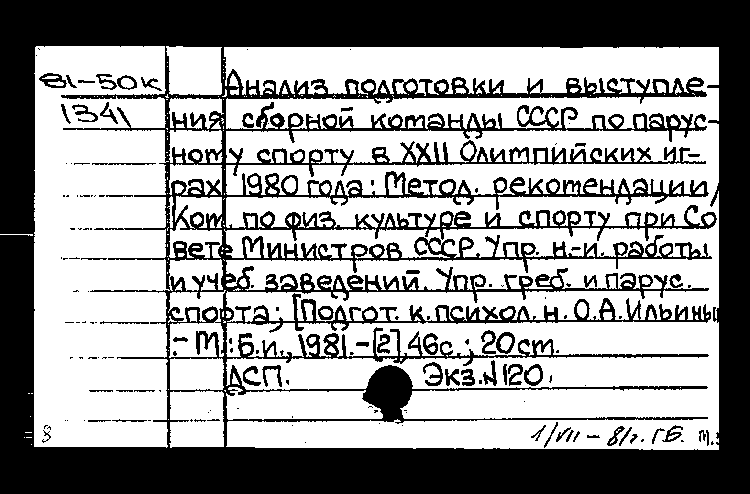 81-50к Анализ подготовки и выступле-
1341 ния сборной команды СССР по парус-
ному спорту в XXII Олимпийских иг-
рах 1980 года: Метод. рекомендации/
Ком. по физ. культуре и спорту при Со
вете Министров СССР. Упр. н.-и. работы
и учеб. заведений. Упр. греб. и парус.
спорта; [Подгот. к. психол. н. О.А. Ильины
.- М.: Б.и., 1981.-[2], 46с.; 20 см.
ДСП. Экз. N120.
8 1/VII – 81г. Г.Б. М.